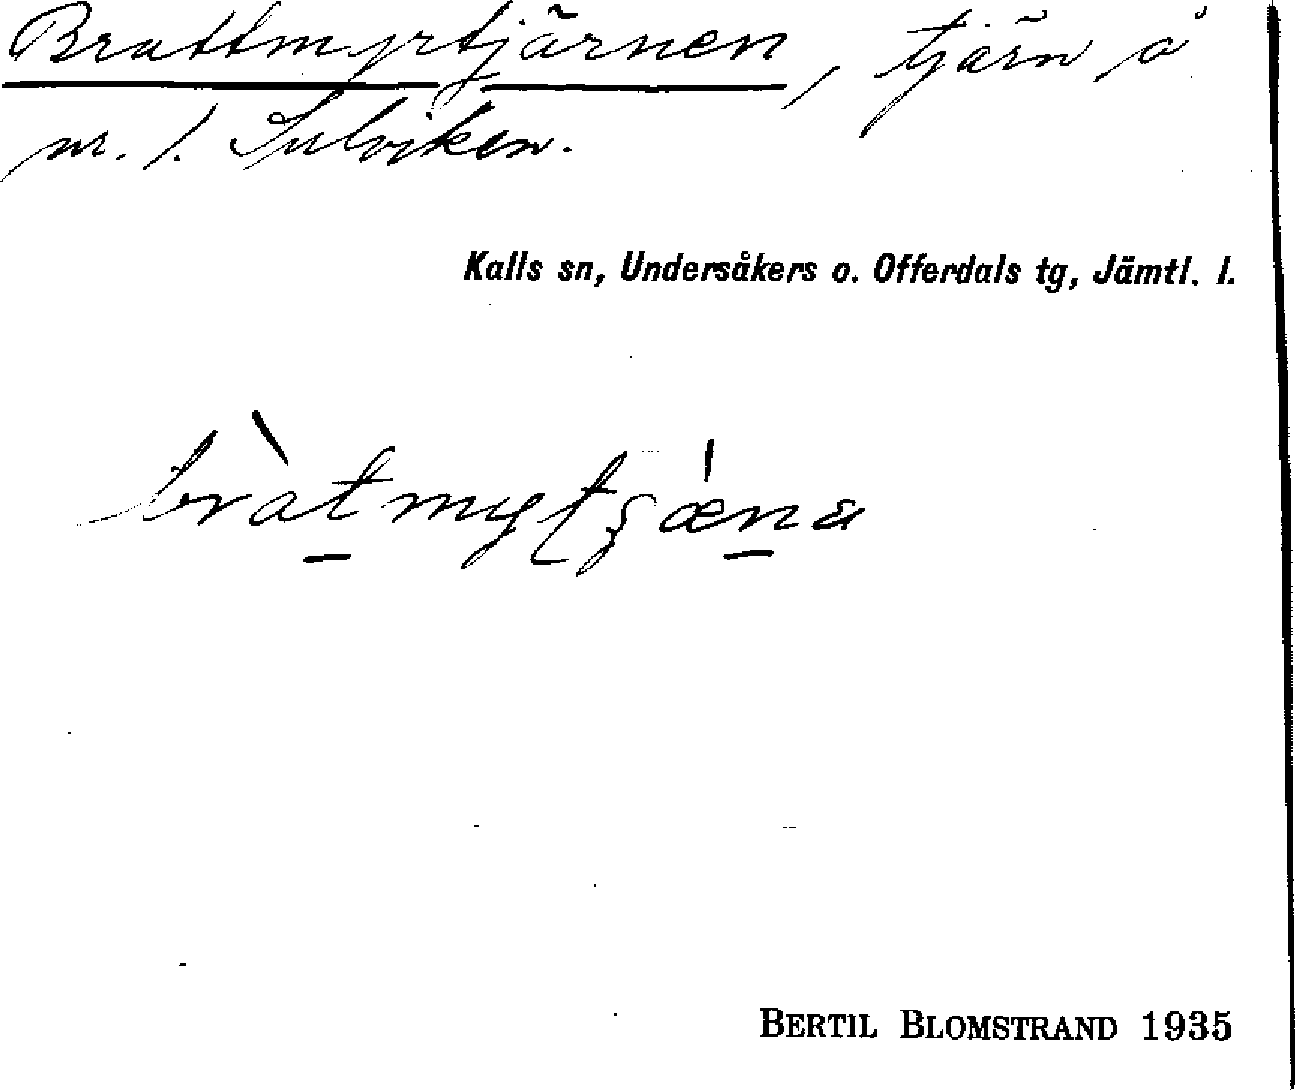 Brattmyrtjärnen, tjärn å
nr. 1. Sulviken.
Kalls sn, Undersåkers o. Offerdals tg, Jämtl. l.
BERTIL BLOMSTRAND 1935